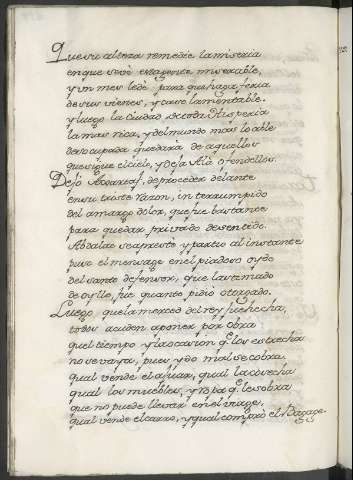 Que su alteza remedie la miseria
en que se vè esta gente miserable,
y un mes le dè para que haga feria
de sus vienes, y caso lamentable.
y luego la Ciudad de toda Hisperia
la mas rica, y del mundo mas loable
desocupada quedarà de aquellos
que sigue el cielo, y deja Alà ofendellos.
Dejò Abdarraf, de proceder delante
en su triste razon, interrumpido
del amargo dolor, que fue bastante
para quedar privado de sentido.
Abdalac se aprestò y partio al instante
puso el mensage en el piadoso oydo
del santo defensor, que lastimado
de oyllo, fue quanto pidiò otorgado.
Luego, que la merced del rey fue hecha,
todos acuden a poner por obra
quel tiempo y la ocasion q̃. los estrecha
no se vaya, pues ydo mal se cobra.
qual vende el ajuar, qual la cosecha
qual los muebles, y ropa q̃. le sobra
que no puede llevar en el viage,
qual vende el carro, y qual comprò el Bagage.